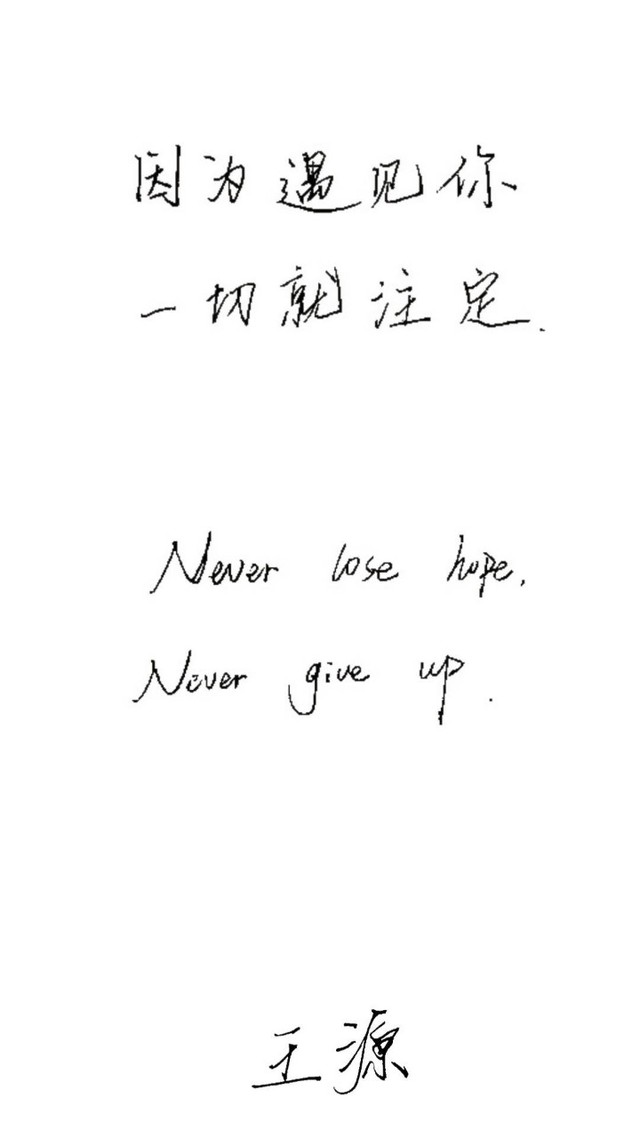 因为遇见你
一切就注定.
Never lose hope,
Never give up.
王源